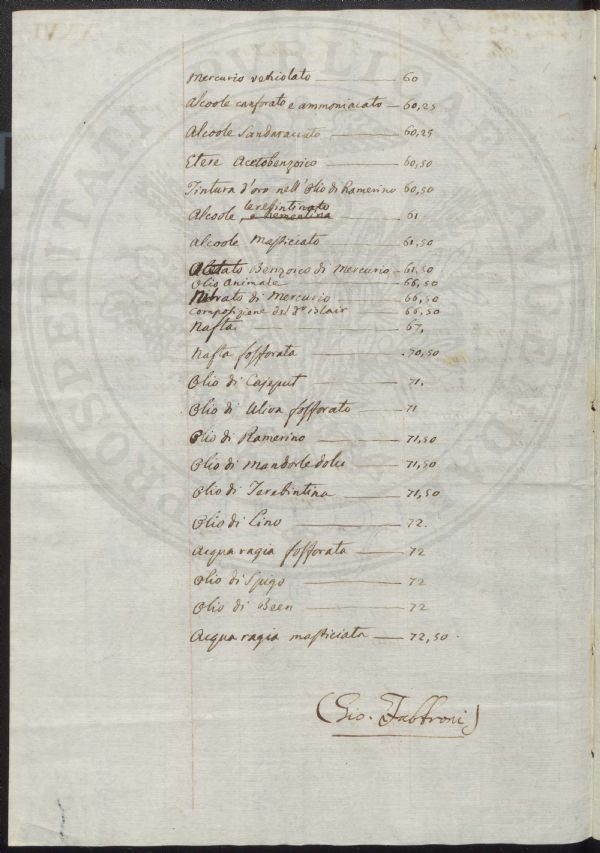 Mercurio vetriolato — 60
Alcoole canforato e ammoniacato — 60,25
Alcoole Sandaracato — 60,25
Etere Acetobenzoico — 60,50
Tintura d'oro nell'Olio di Ramerino 60,50
terebintinato
Alcoole, e trementina — 61
Alcoole Masticiato — 61,50
Benzoico di Mercurio — 61,50
Olio animale — 66,50
Nitrato di Mercurio — 66,50
Composizione del Dr. Islair — 66,50
Nafta — 67,
Nafta fosforata — 70,50
Olio di Cajeput — 71.
Olio di Uliva fosforato — 71
Olio di Ramerino — 71,50
Olio di Mandorle dolci — 71,50
Olio di Terebintina — 71,50
Olio di Lino — 72.
Acqua ragia fosforata — 72
Olio di Spigo — 72
Olio di Been — 72
Acqua ragia masticiata — 72,50
(Gio. Fabbroni)